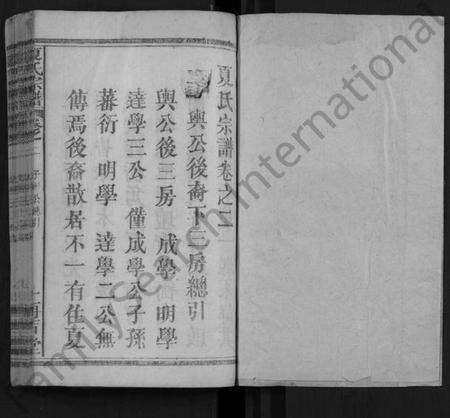 夏氏宗譜卷之二
興公後裔下三房總引
興公後三房　成學　明學
達學三公　僅成學公子孫
蕃衍　明學　達學二公無
傳焉後裔散居不一有住夏
夏氏宗譜
FamilySearch International